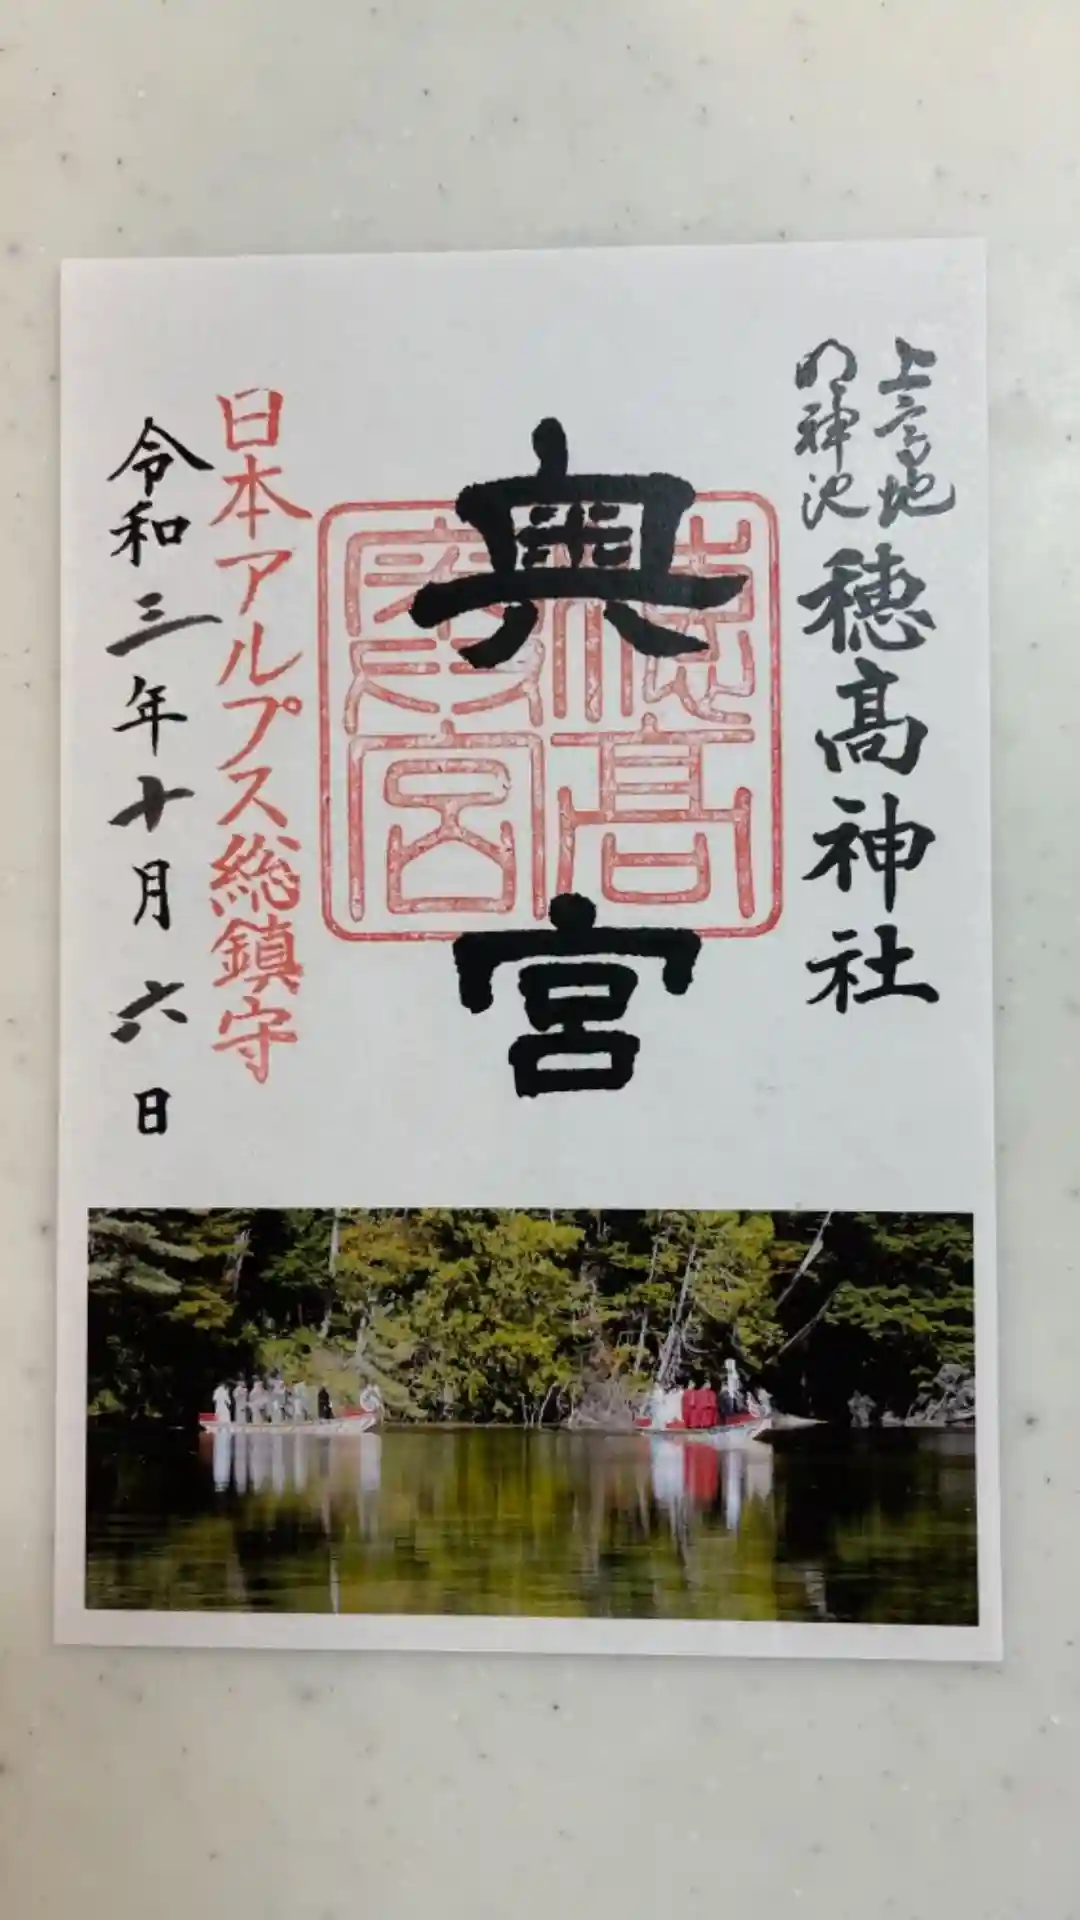 上高地
明神池
穂髙神社
奥宮
穂髙
奥宮
日本アルプス総鎮守
令和三年十月六日